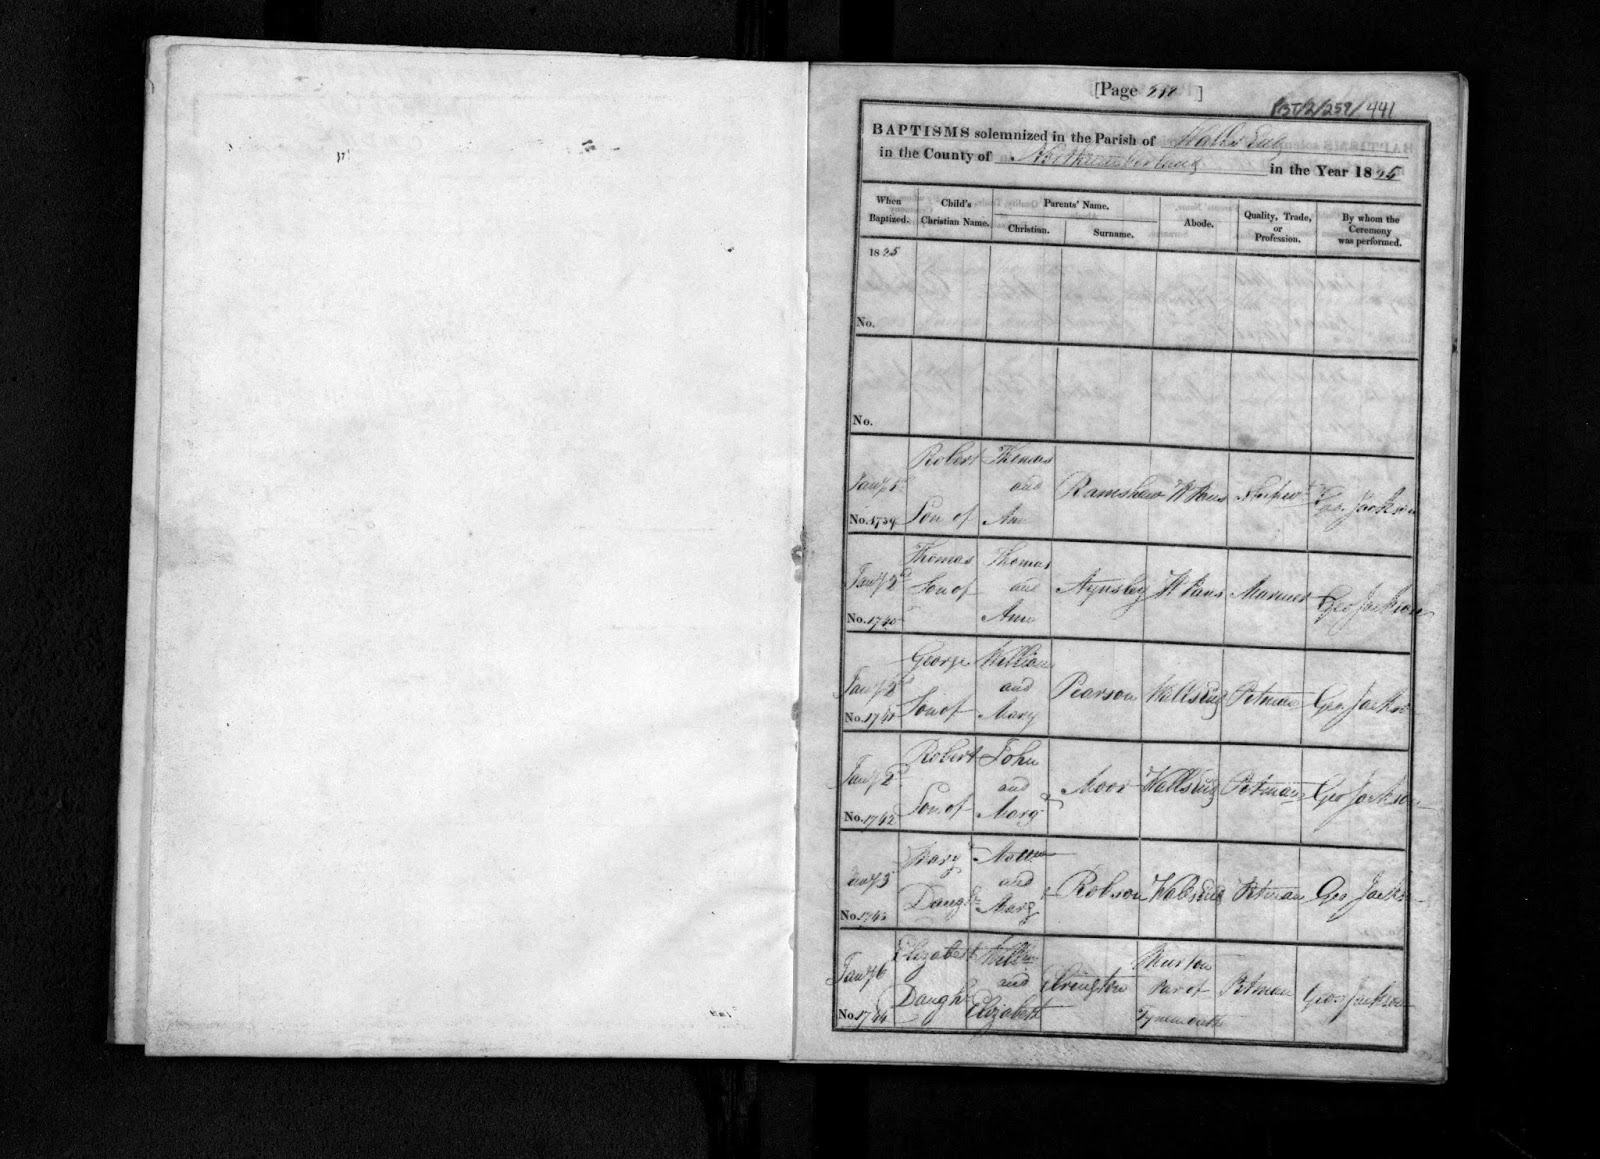 [Page ]
BAPTISMS solemnized in the Parish of Walls End
in the County of Northumberland in the Year 1825
When Baptized.
Child's Christian Name.
Parents' Name.
Christian.
Surname.
Abode.
Quality, Trade, or Profession.
By whom the Ceremony was performed.
1825
No.
No.
Robert Thomas
Jany 1st and Ramshaw W Pans Geo. Jackson
No. 1739 Son of Ann
Thomas Thomas
Jany 2d Son of and Aynsley W Pans Mariner Geo Jackson
No. 1740 Ann
George William
Jany 2d and Pearson Walls End Pitman Geo Jackson
No. 1741 Son of Mary
Robert John
Jany 2d and Moor Walls End Pitman Geo Jackson
No. 1742 Son of Marg
Mary
Jany 3 and Robson Walls End Pitman Geo Jackson
No. 1743 Daughr Marg
Elizabeth Willm Murton
Jany 6 and Par of Pitman Geo Jackson
No. 1744 Daughr Elizabeth Tynemouth